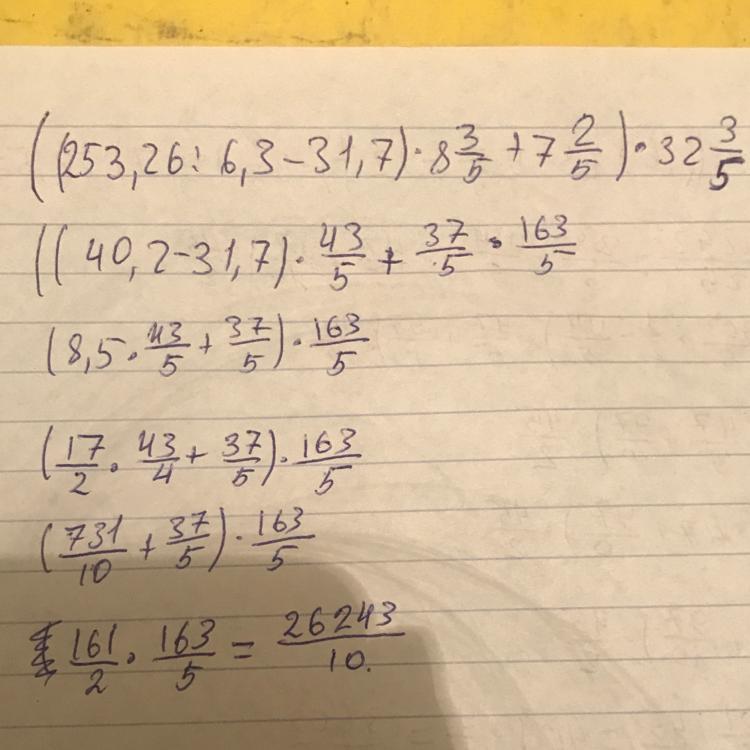 ((253,26 : 6,3 - 31,7) · 8 3/5 + 7 2/5) · 32 3/5
((40,2 - 31,7) · 43/5 + 37/5 · 163/5
(8,5 · 43/5 + 37/5) · 163/5
(17/2 · 43/4 + 37/5) · 163/5
(731/10 + 37/5) · 163/5
161/2 · 163/5 = 26243/10.